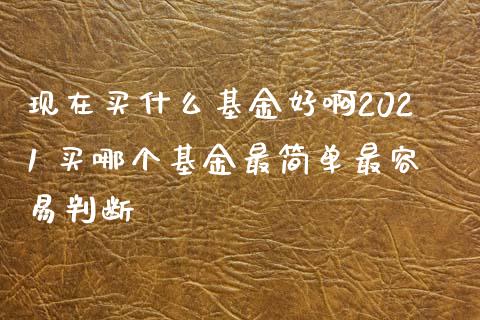 现在买什么基金好啊202
1 买哪个基金最简单最容
易判断